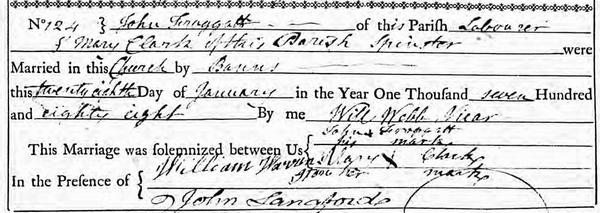 No 124 } John Froggatt of this Parish Labourer
& Mary Clark of this Parish Spinster were
Married in this Church by Banns
this twenty eighth Day of January in the Year One Thousand seven Hundred
and eighty eight By me Will Webb Vicar
This Marriage was solemnized between Us { John + Froggatt
his mark
Mary x Clark
her mark
In the Presence of { William
John Langford